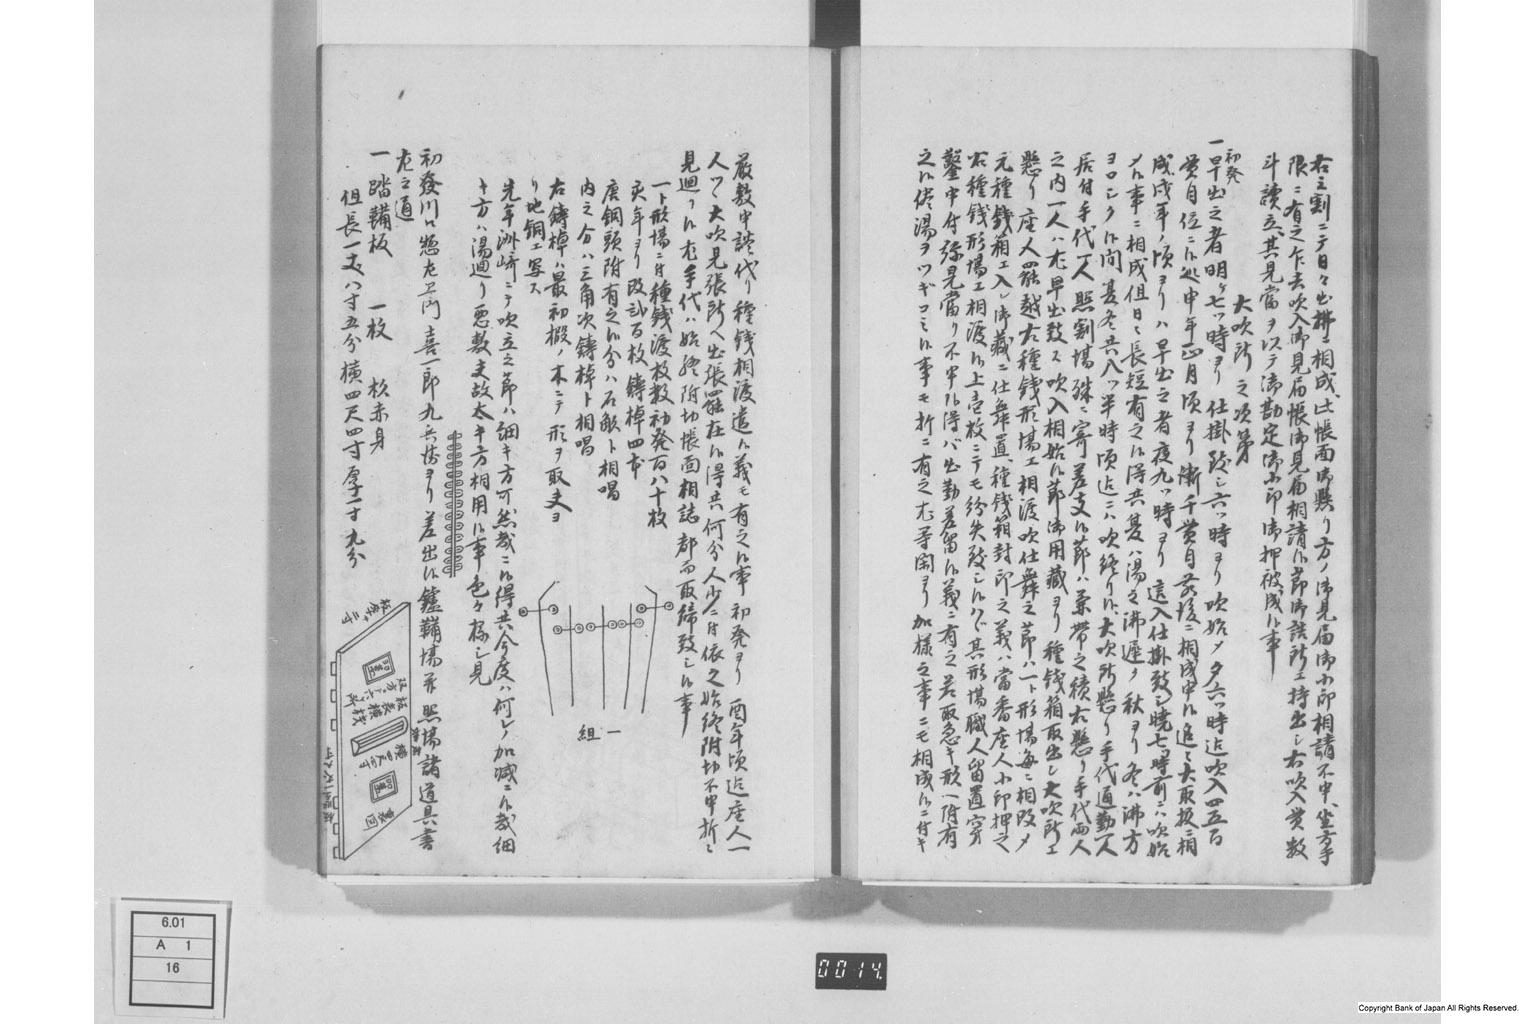 右之割ニ而日々出拂ニ相成、此帳面御懸り方ノ御見届御小印相請不申、坐方手
限ニ有之乍去吹入御見届帳御見届相請候節御談所エ持出シ右吹入貫数
斗讀立、其見當ヲ以テ御勘定御小印御押被成候事
大吹所之次第
初発
一早出之者明ケ七ツ時ヨリ仕掛致シ六ツ時ヨリ吹始メ夕六ツ時迄吹入四五百
貫目位ニ候処申年正月頃ヨリ漸千貫目前後ニ相成申候追々大取扱ニ相
成戌年ノ頃ヨリハ早出之者夜九ツ時ヨリ這入仕掛致シ暁七ツ時前ニハ吹始
メ候事ニ相成但日ニ長短有之候得共夏ハ湯之沸遅ク秋ヨリ冬ハ沸方
ヨロシク候間夏冬共八ツ半時頃迄ニハ吹終り候、大吹所懸り手代通勤一人
居付手代一人照割場殊ニ寄差支候節ハ兼帯之積右懸り手代両人
之内一人ハ右早出致ス吹入相始候節御用藏ヨリ種銭箱取出シ大吹所エ
懸り座人罷越右種銭形場エ相渡吹仕舞之節ハ一ト形場毎ニ相改メ
元種銭箱エ入レ御藏ニ仕舞置、種銭箱封印之義ハ當番座人小印押之
右種銭形場エ相渡候上壱枚ニテモ紛失致シ候ハヾ其形場職人留置穿
鑿申付弥見當り不申候得バ出勤差留候義ニ有之若取急キ形ヘ附有
之候侭湯ヲツギコミ候事モ折ニ有之右等閑ヨリ加様之事ニモ相成候ニ付キ
厳敷申諾代り種銭相渡遣候義モ有之候事初発ヨリ酉年頃迄座人一
人ツヽ大吹見張所ヘ出張罷在候得共何分人少ニ付依之始終附切不申折々
見廻り候右手代ハ始終附切帳面相誌都而取締致シ候事
一ト形場ニ付種銭渡枚数初発百八十枚
亥年ヨリ改弐百枚鋳棹四本
唐銅頭附有之候分ハ石敵ト相唱
内之分ハ三角次鋳棹ト相唱
右鋳棹ハ最初椴ノ木ニテ形ヲ取夫ヨ
り地銅エ写ス
先年洲崎ニテ吹立之節ハ細キ方可然哉ニ候得共今度ハ何レノ加減ニ候哉細
キ方ハ湯廻り悪敷夫故太キ方相用候事色々様シ見
一組
初發川口惣右エ門喜一郎九兵衛ヨリ差出候鑪鞴場并照場諸道具書
左之通
一踏鞴板　一枚　杉赤身
但長一丈八寸五分横四尺四寸厚一寸九分